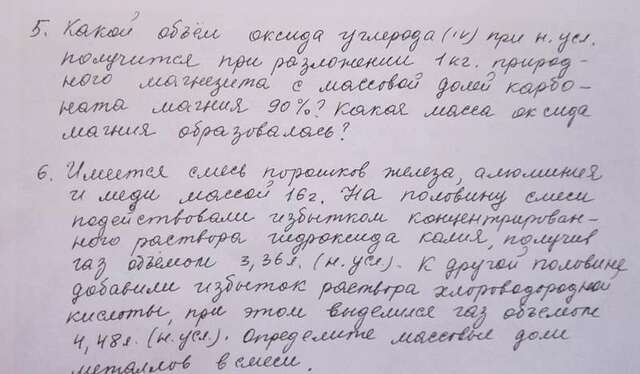 5. Какой объём оксида углерода (IV) при н.усл.
получится при разложении 1 кг. природ-
ного магнезита с массовой долей карбо-
ната магния 90%? Какая масса оксида
магния образовалась?
6. Имеется смесь порошков железа, алюминия
и меди массой 16 г. На половину смеси
подействовали избытком концентрирован-
ного раствора гидроксида калия, получив
газ объёмом 3,36л. (н.усл). К другой половине
добавили избыток раствора хлороводородной
кислоты, при этом выделился газ объемом
4,48л. (н.усл). Определите массовые доли
металлов в смеси.